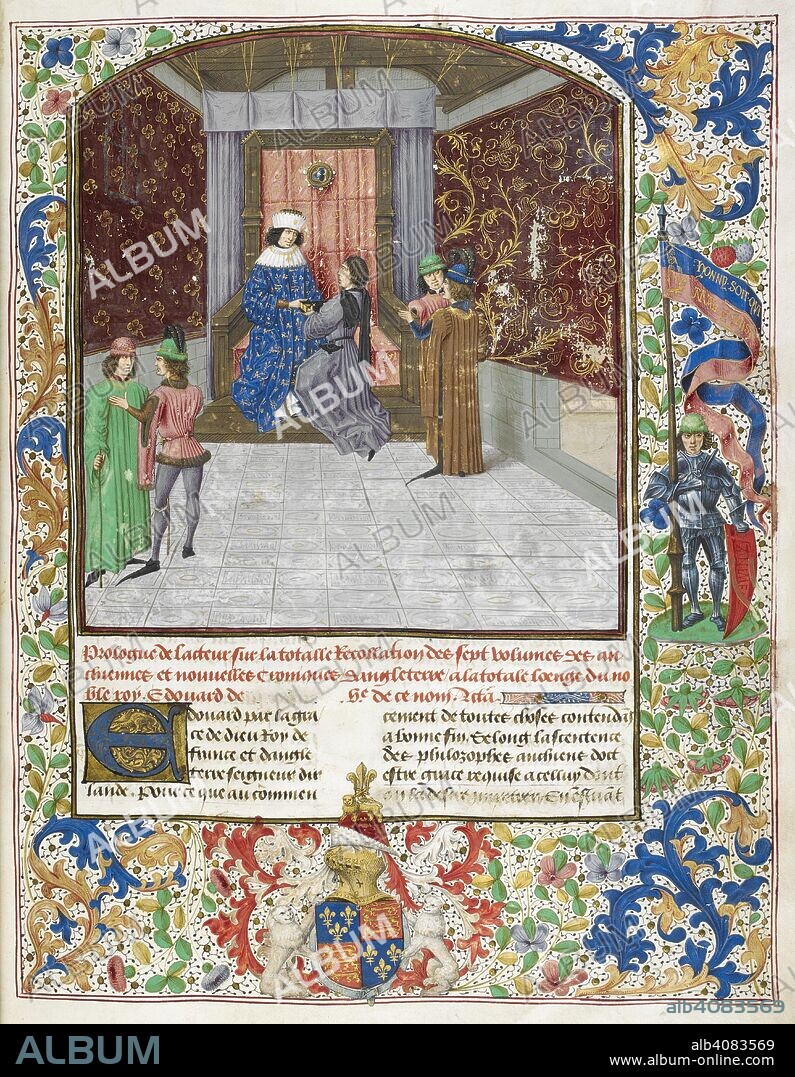 HONNY SOIT QUI
Prologue de lacteur sur la totalle Recollation des sept volumes des an
chiennes et nouvelles Cronicques dangleterre a la totale loenge du no
ble roy. Edouard de
Edouard par la gra
ce de dieu Roy de
france et dangle
terre seigneur dir
lande. Pour ce que au commen
cement de toutes choses contendans
a bonne fin. Selong la sentence
des philozophes anchiens doit
estre grace requise a celluy dont
ALBUM
alb4083569
ALBUM
alb4083569
www.album-online.com